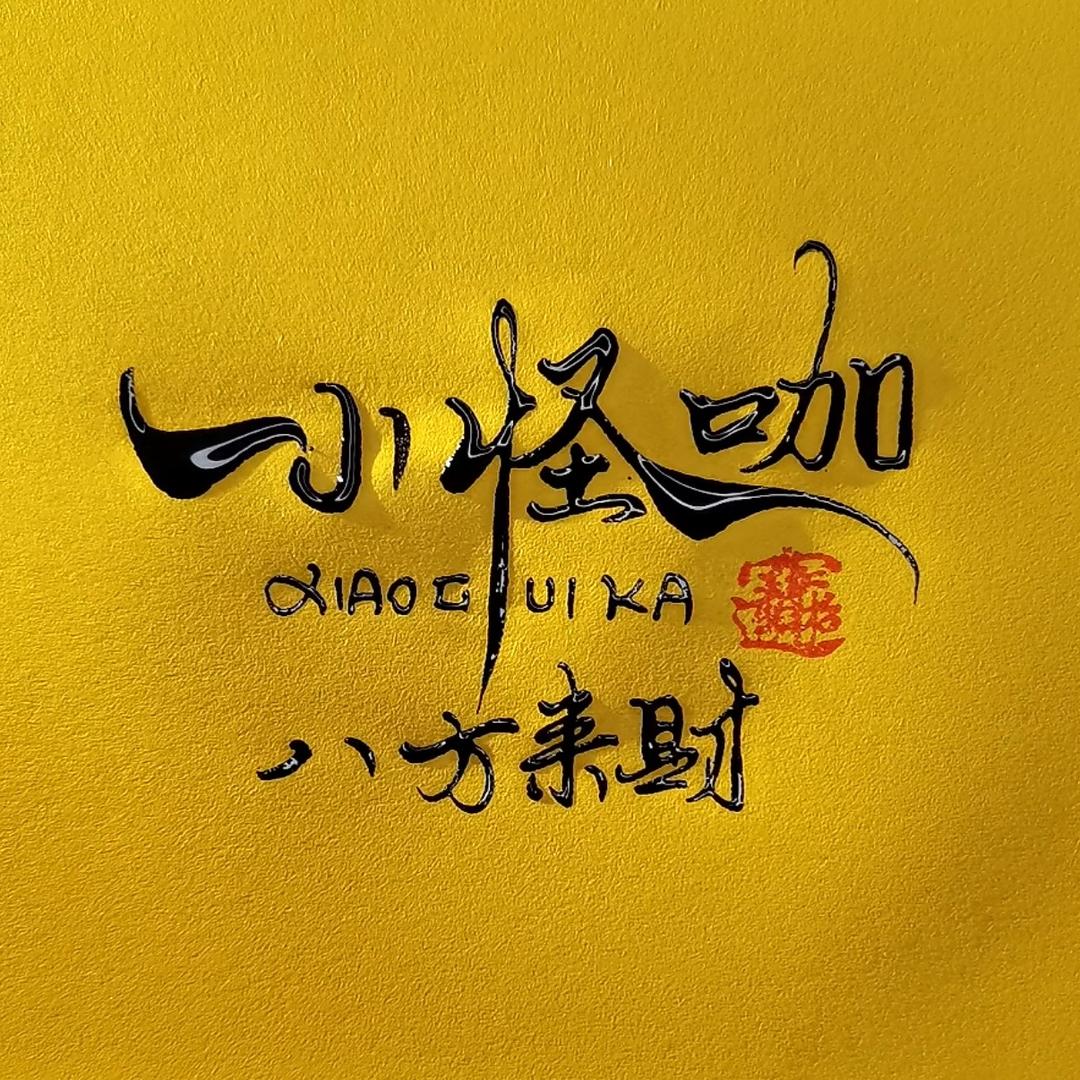 小怪咖
XIAOGUI KA
招財進寶
八方来財